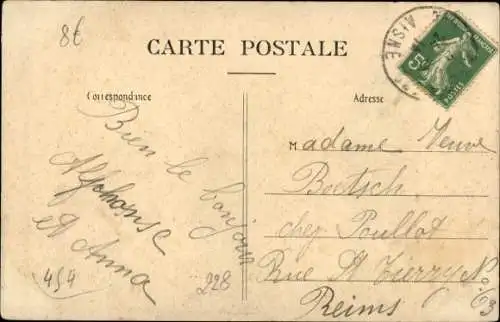 8€
CARTE POSTALE
Correspondance
Adresse
AISNE
5c
POSTES
Bien le bonjour
Alphonse
et Anna
Madame Veuve
Boetsch
chez Poullot
Rue St Tierry No. 63
Reims
454
228